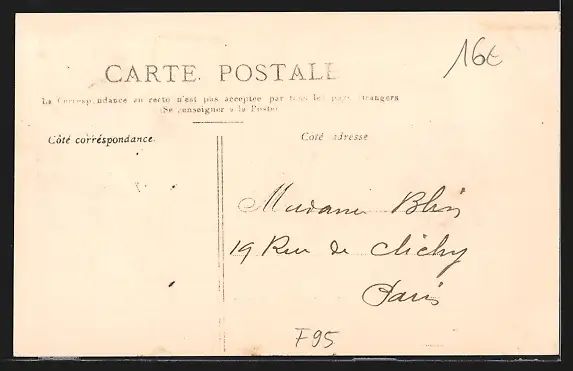 16€
CARTE POSTALE
La Correspondance au recto n'est pas acceptée par tous les pays étrangers
(Se renseigner à la Poste)
Côté corréspondance.
Côté adresse
Madame Blin
19 Rue de Clichy
Paris
F95